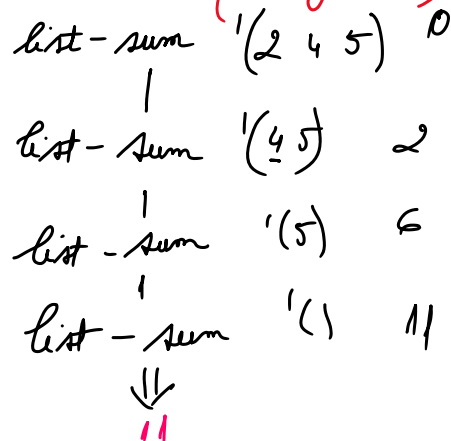 list-sum '(2 4 5) 0
list-sum '(4 5) 2
list-sum '(5) 6
list-sum '() 11
11